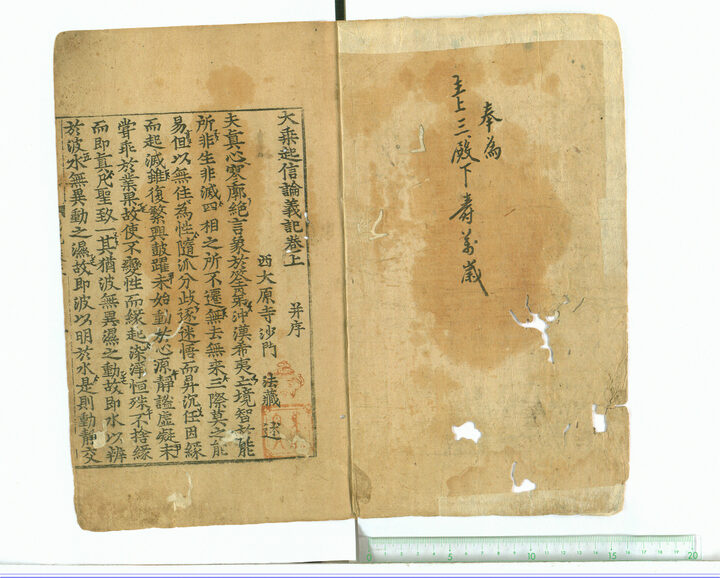 奉為
主上三殿下寿萬歲
大乗起信論義記卷上 并序
西大原寺沙門 法藏 述
夫真心寥廓絕言象於筌第沖漠希夷亡境智於能
所非生非滅四相之所不遷無去無來三際莫之能
易但以無住為性隨派分岐逐迷悟而昇沉任因緣
而起滅雖復繁興鼓躍未始動於心源靜謐虛凝未
嘗乖於業果故使不變性而緣起染淨恒殊不捨緣
而即真凡聖致一其猶波無異濕之動故即水以辨
於波水無異動之濕故即波以明於水是則動靜交
0 5 10 15 20